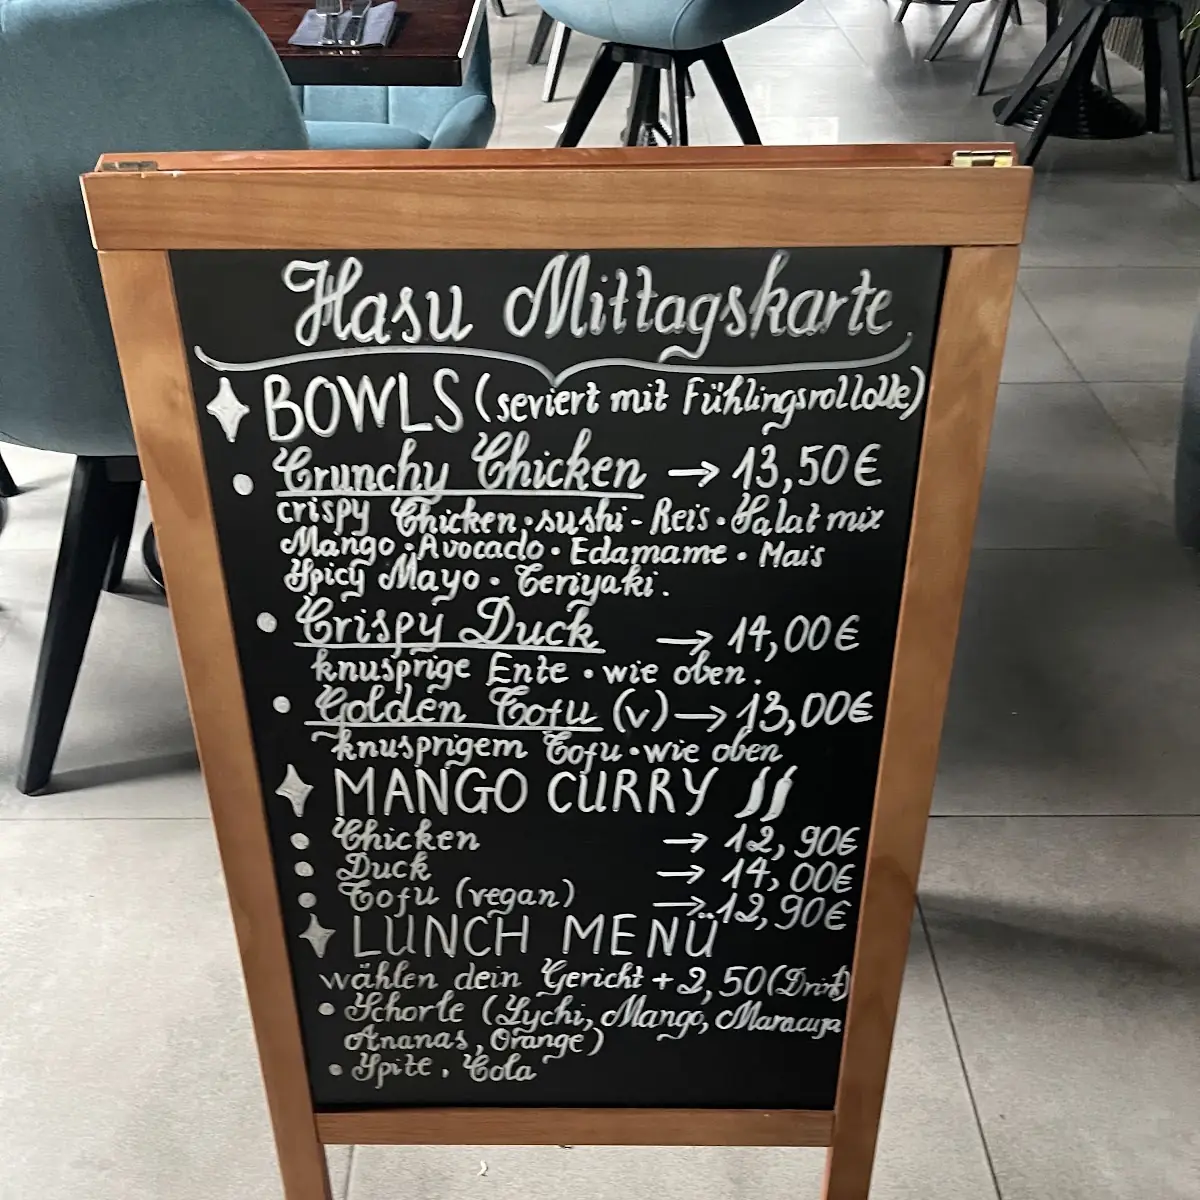 Hasu Mittagskarte
BOWLS (seviert mit Fühlingsrollolle)
Crunchy Chicken → 13,50€
crispy Chicken • sushi - Reis • Salat mix
Mango • Avocado • Edamame • Mais
Spicy Mayo • Teriyaki.
Crispy Duck → 14,00€
knusprige Ente • wie oben.
Golden Tofu (v) → 13,00€
knusprigem Tofu • wie oben
MANGO CURRY
Chicken → 12,90€
Duck → 14,00€
Tofu (vegan) → 12,90€
LUNCH MENÜ
wählen dein Gericht + 2,50 (Drink)
• Schorle (Lychi, Mango, Maracuja
Ananas, Orange)
• Spite, Cola